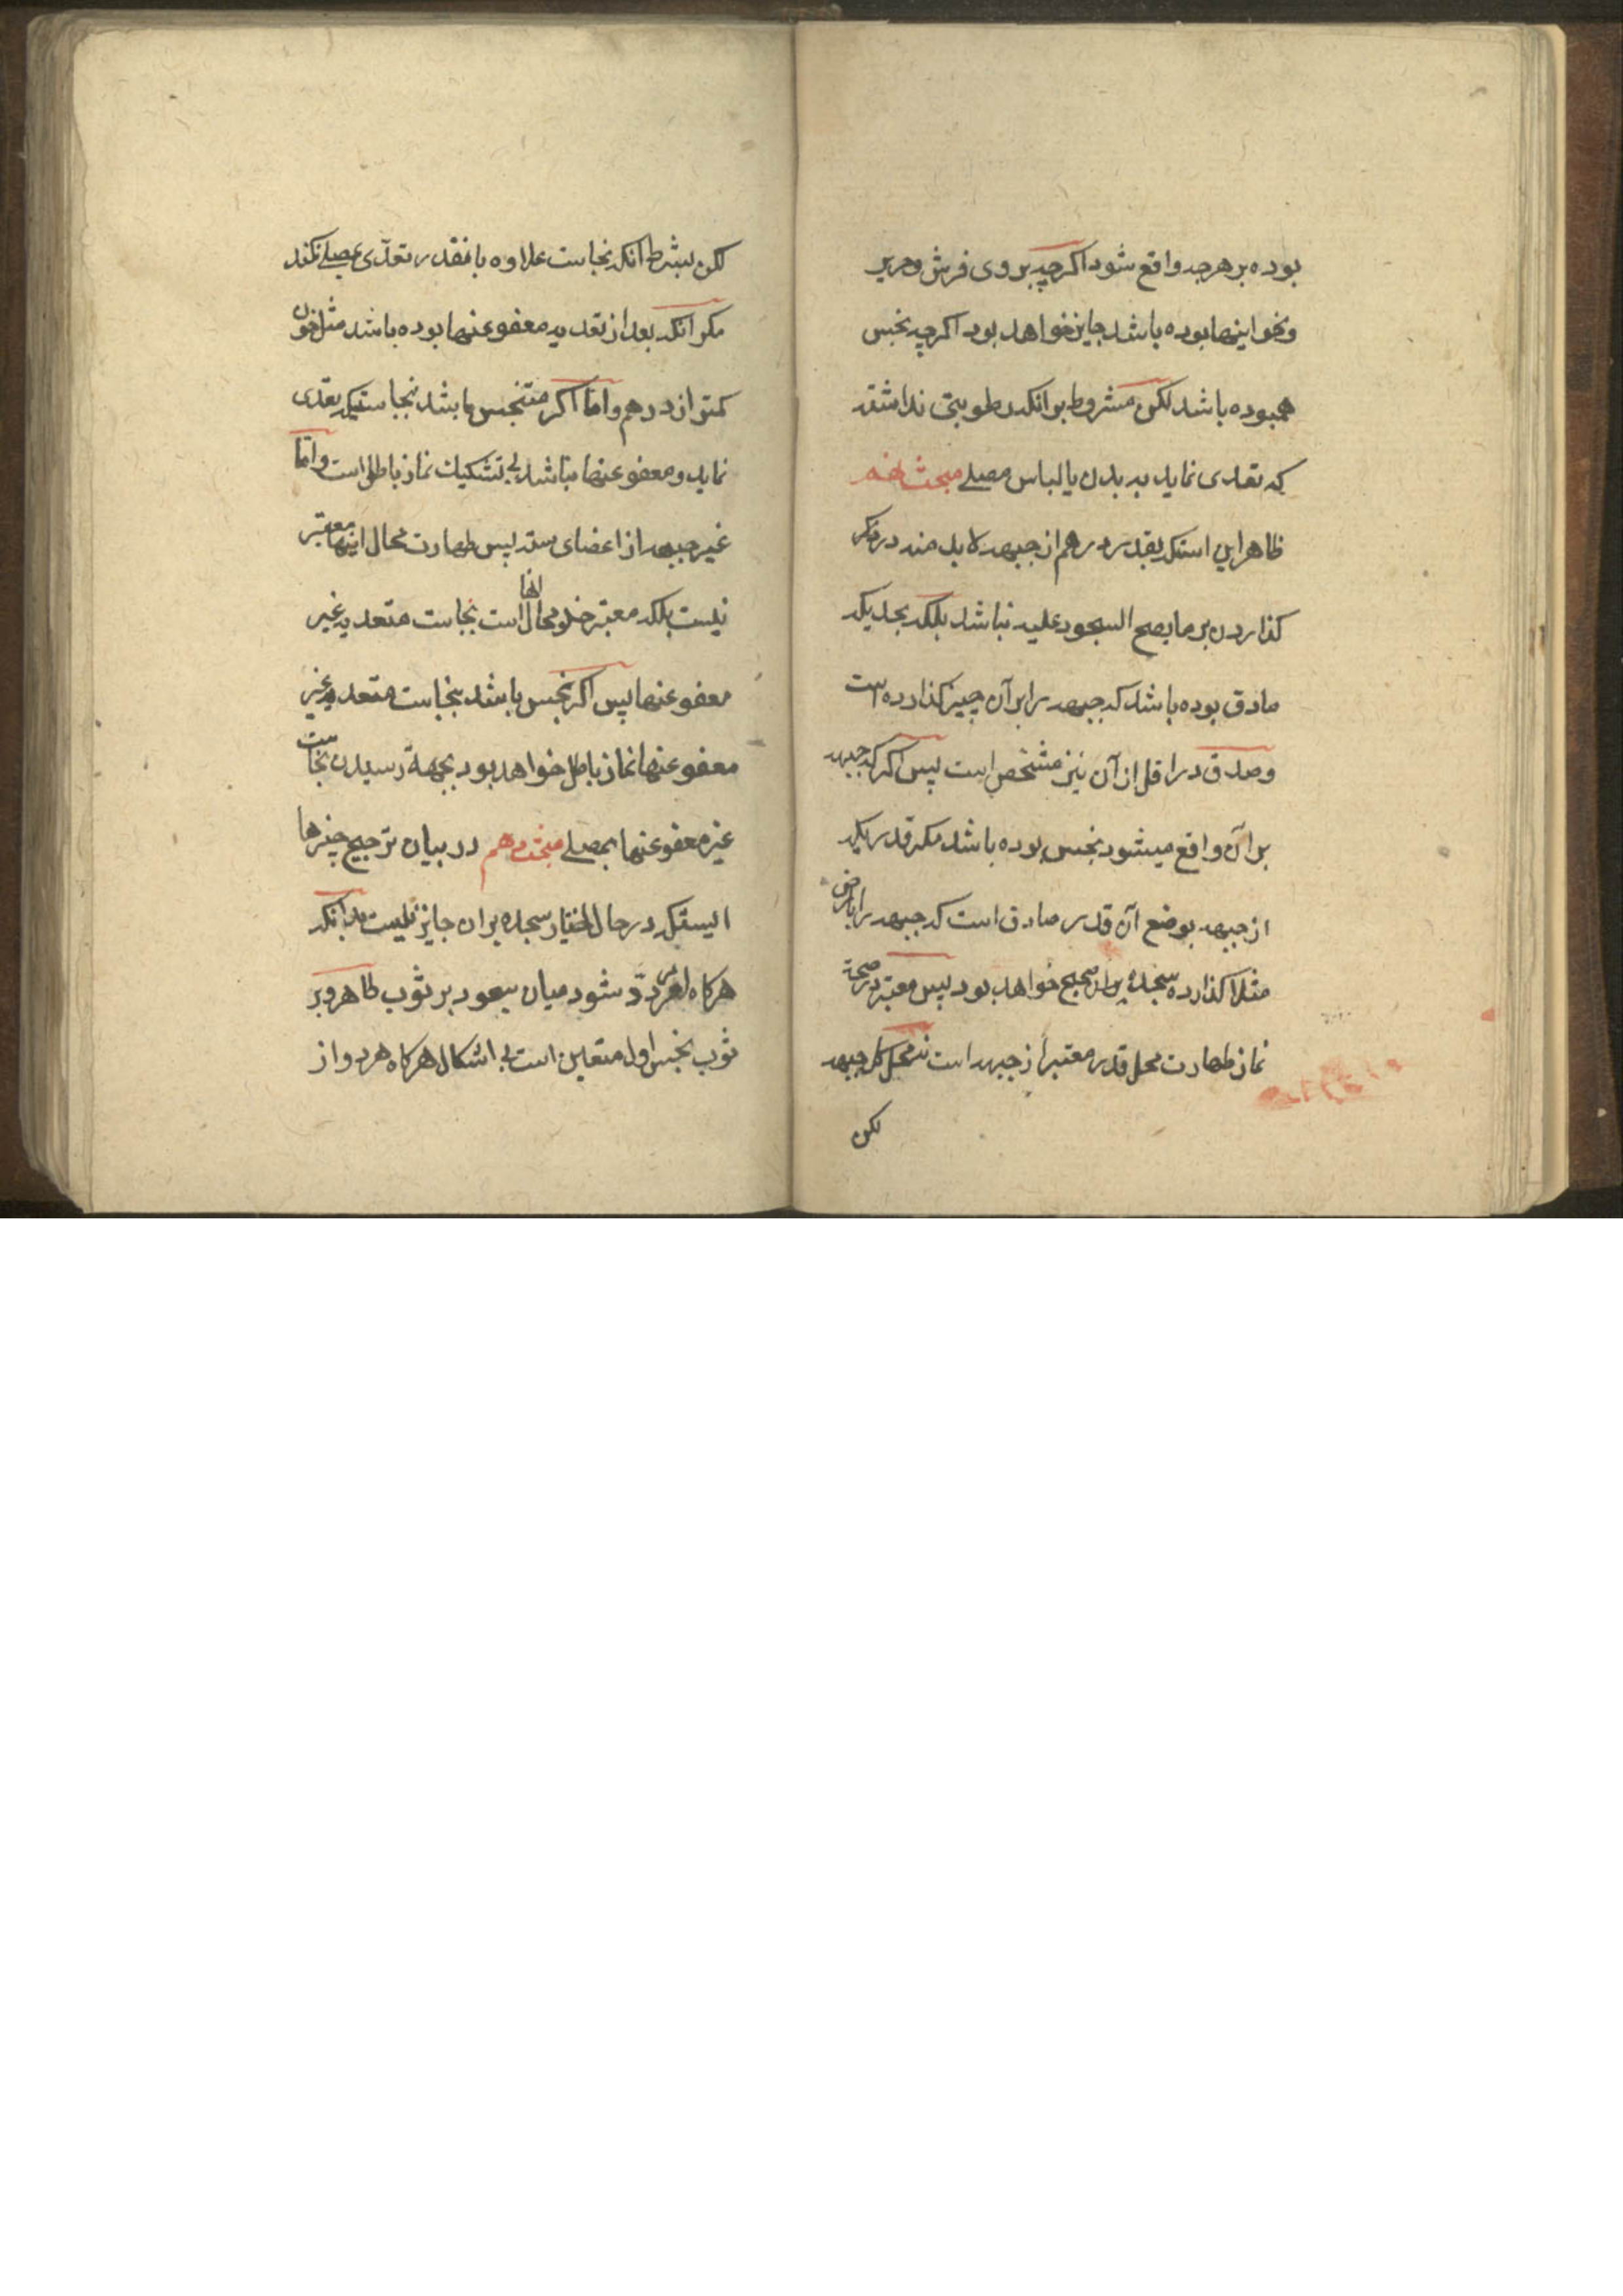 بوده بر هرچه واقع شود اکرچه بر وی فرش و حریر
و نحو اینها بوده باشد جایز خواهد بود اکرچه نجس
همبوده باشد لکن مشروط بر انکه رطوبتی نداشته
که تعدی نماید به بدن یا لباس مصلے مبحث نهم
ظاهر این استکه بقدر درهم از جبهه لابد منه در
کذاردن بر ما یصح السجود علیه نباشد بلکه بحدیکه
صادق بوده باشد که جبهه را بر آن چیز کذارده است
و صدق در اقل از آن نیز مشخص است پس اکر که جبهه
بر آن واقع میشود نجس بوده باشد مکر قدریکه
از جبهه بوضع آن قدر صادق است که جبهه را بارض
مثلا کذارده سجده بر ان صحیح خواهد بود پس معتبر در صحة
نماز طهارت محل قدر معتبر از جبهه است نه محل کل جبهه
لکن
لکن بشرط انکه نجاست علاوه بانقدر تعدّی بمصلے نکند
مکر انکه بعد از تعدیه معفو عنها بوده باشد مثل خون
کمتر از درهم و امّا اکر متنجس باشد نجاستیکه تعدی
نماید و معفو عنها نباشد بی تشکیک نماز باطل است و امّا
غیر جبهه از اعضای سته پس طهارت محال اینها معتبر
نیست بلکه معتبر خلو محال انها است نجاست متعدیه غیر
معفو عنها پس اکر نجس باشد بنجاست متعدیه غیر
معفو عنها نماز باطل خواهد بود بجهة رسیدن نجاست
غیر معفو عنها بمصلے مبحث دهم در بیان ترجیح چیزها
ایستکه در حال اختیار سجده بران جایز نیست بدانکه
هرکاه امر مردّد شود میان سجود بر ثوب طاهر و بر
ثوب نجس اول متعین است بی اشکال هرکاه هر دو از